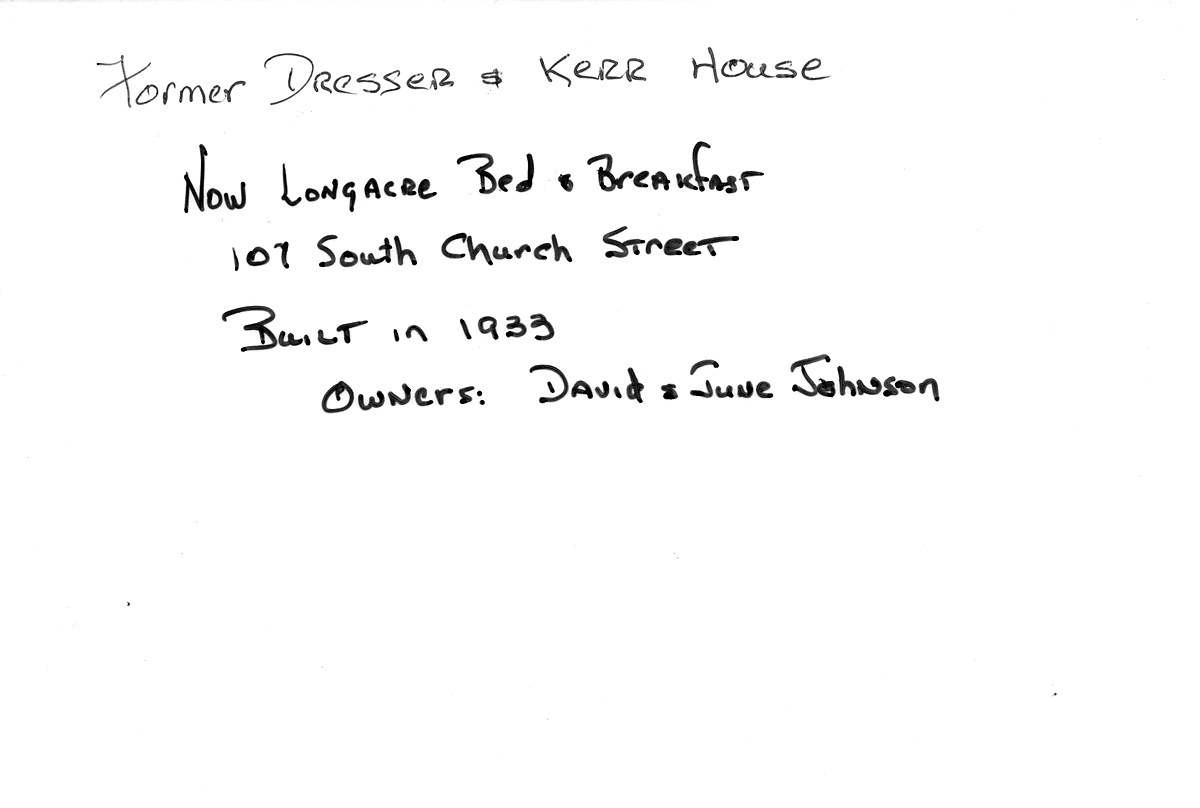 Former Dresser & Kerr House
Now Longacre Bed & Breakfast
107 South Church Street
Built in 1933
Owners: David & June Johnson